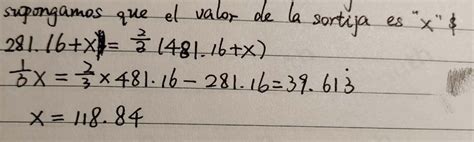 supongamos que el valor de la sortija es "x" $
281.16+x = 2/3 (481.16+x)
1/3 x = 2/3 × 481.16 - 281.16 = 39.613̇
x = 118.84